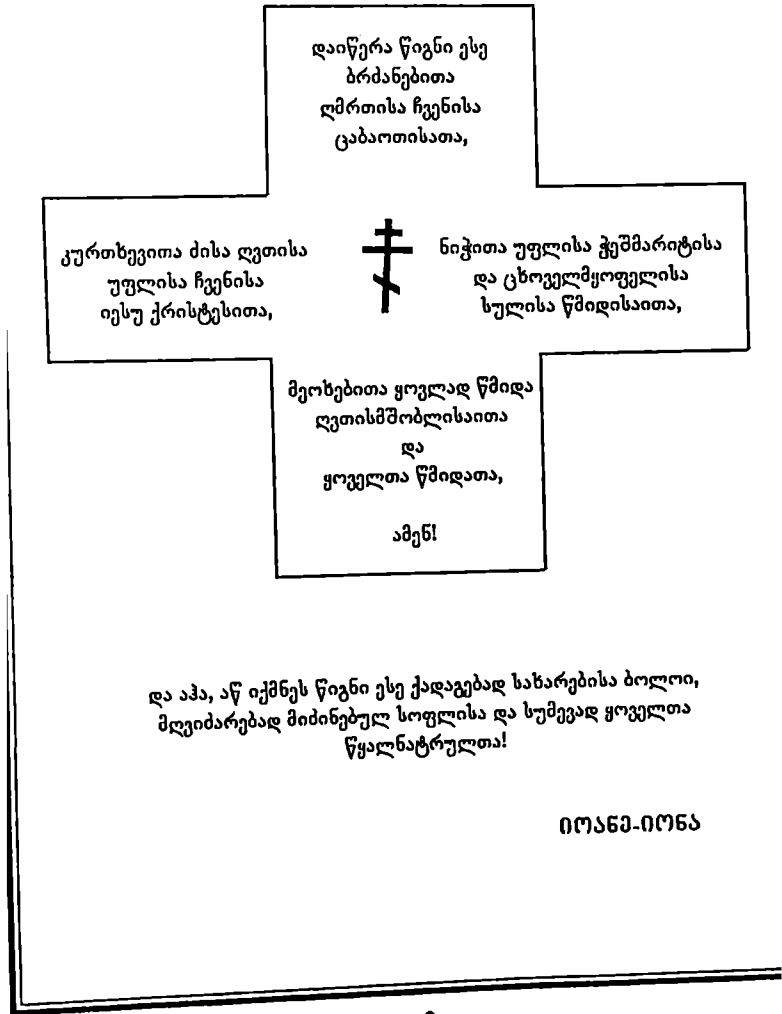 დაიწერა წიგნი ესე
ბრძანებითა
ღმრთისა ჩვენისა
ცაბაოთისათა,
კურთხევითა ძისა ღვთისა
უფლისა ჩვენისა
იესუ ქრისტესითა,
ნიჭითა უფლისა ჭეშმარიტისა
და ცხოველმყოფელისა
სულისა წმიდისაითა,
მეოხებითა ყოვლად წმიდა
ღვთისმშობლისაითა
და
ყოველთა წმიდათა,
ამენ!
და აჰა, აწ იქმნეს წიგნი ესე ქადაგებად სახარებისა ბოლოი,
მღვიძარებად მიძინებულ სოფლისა და სუმევად ყოველთა
წყალნატრულთა!
იოანე-იონა